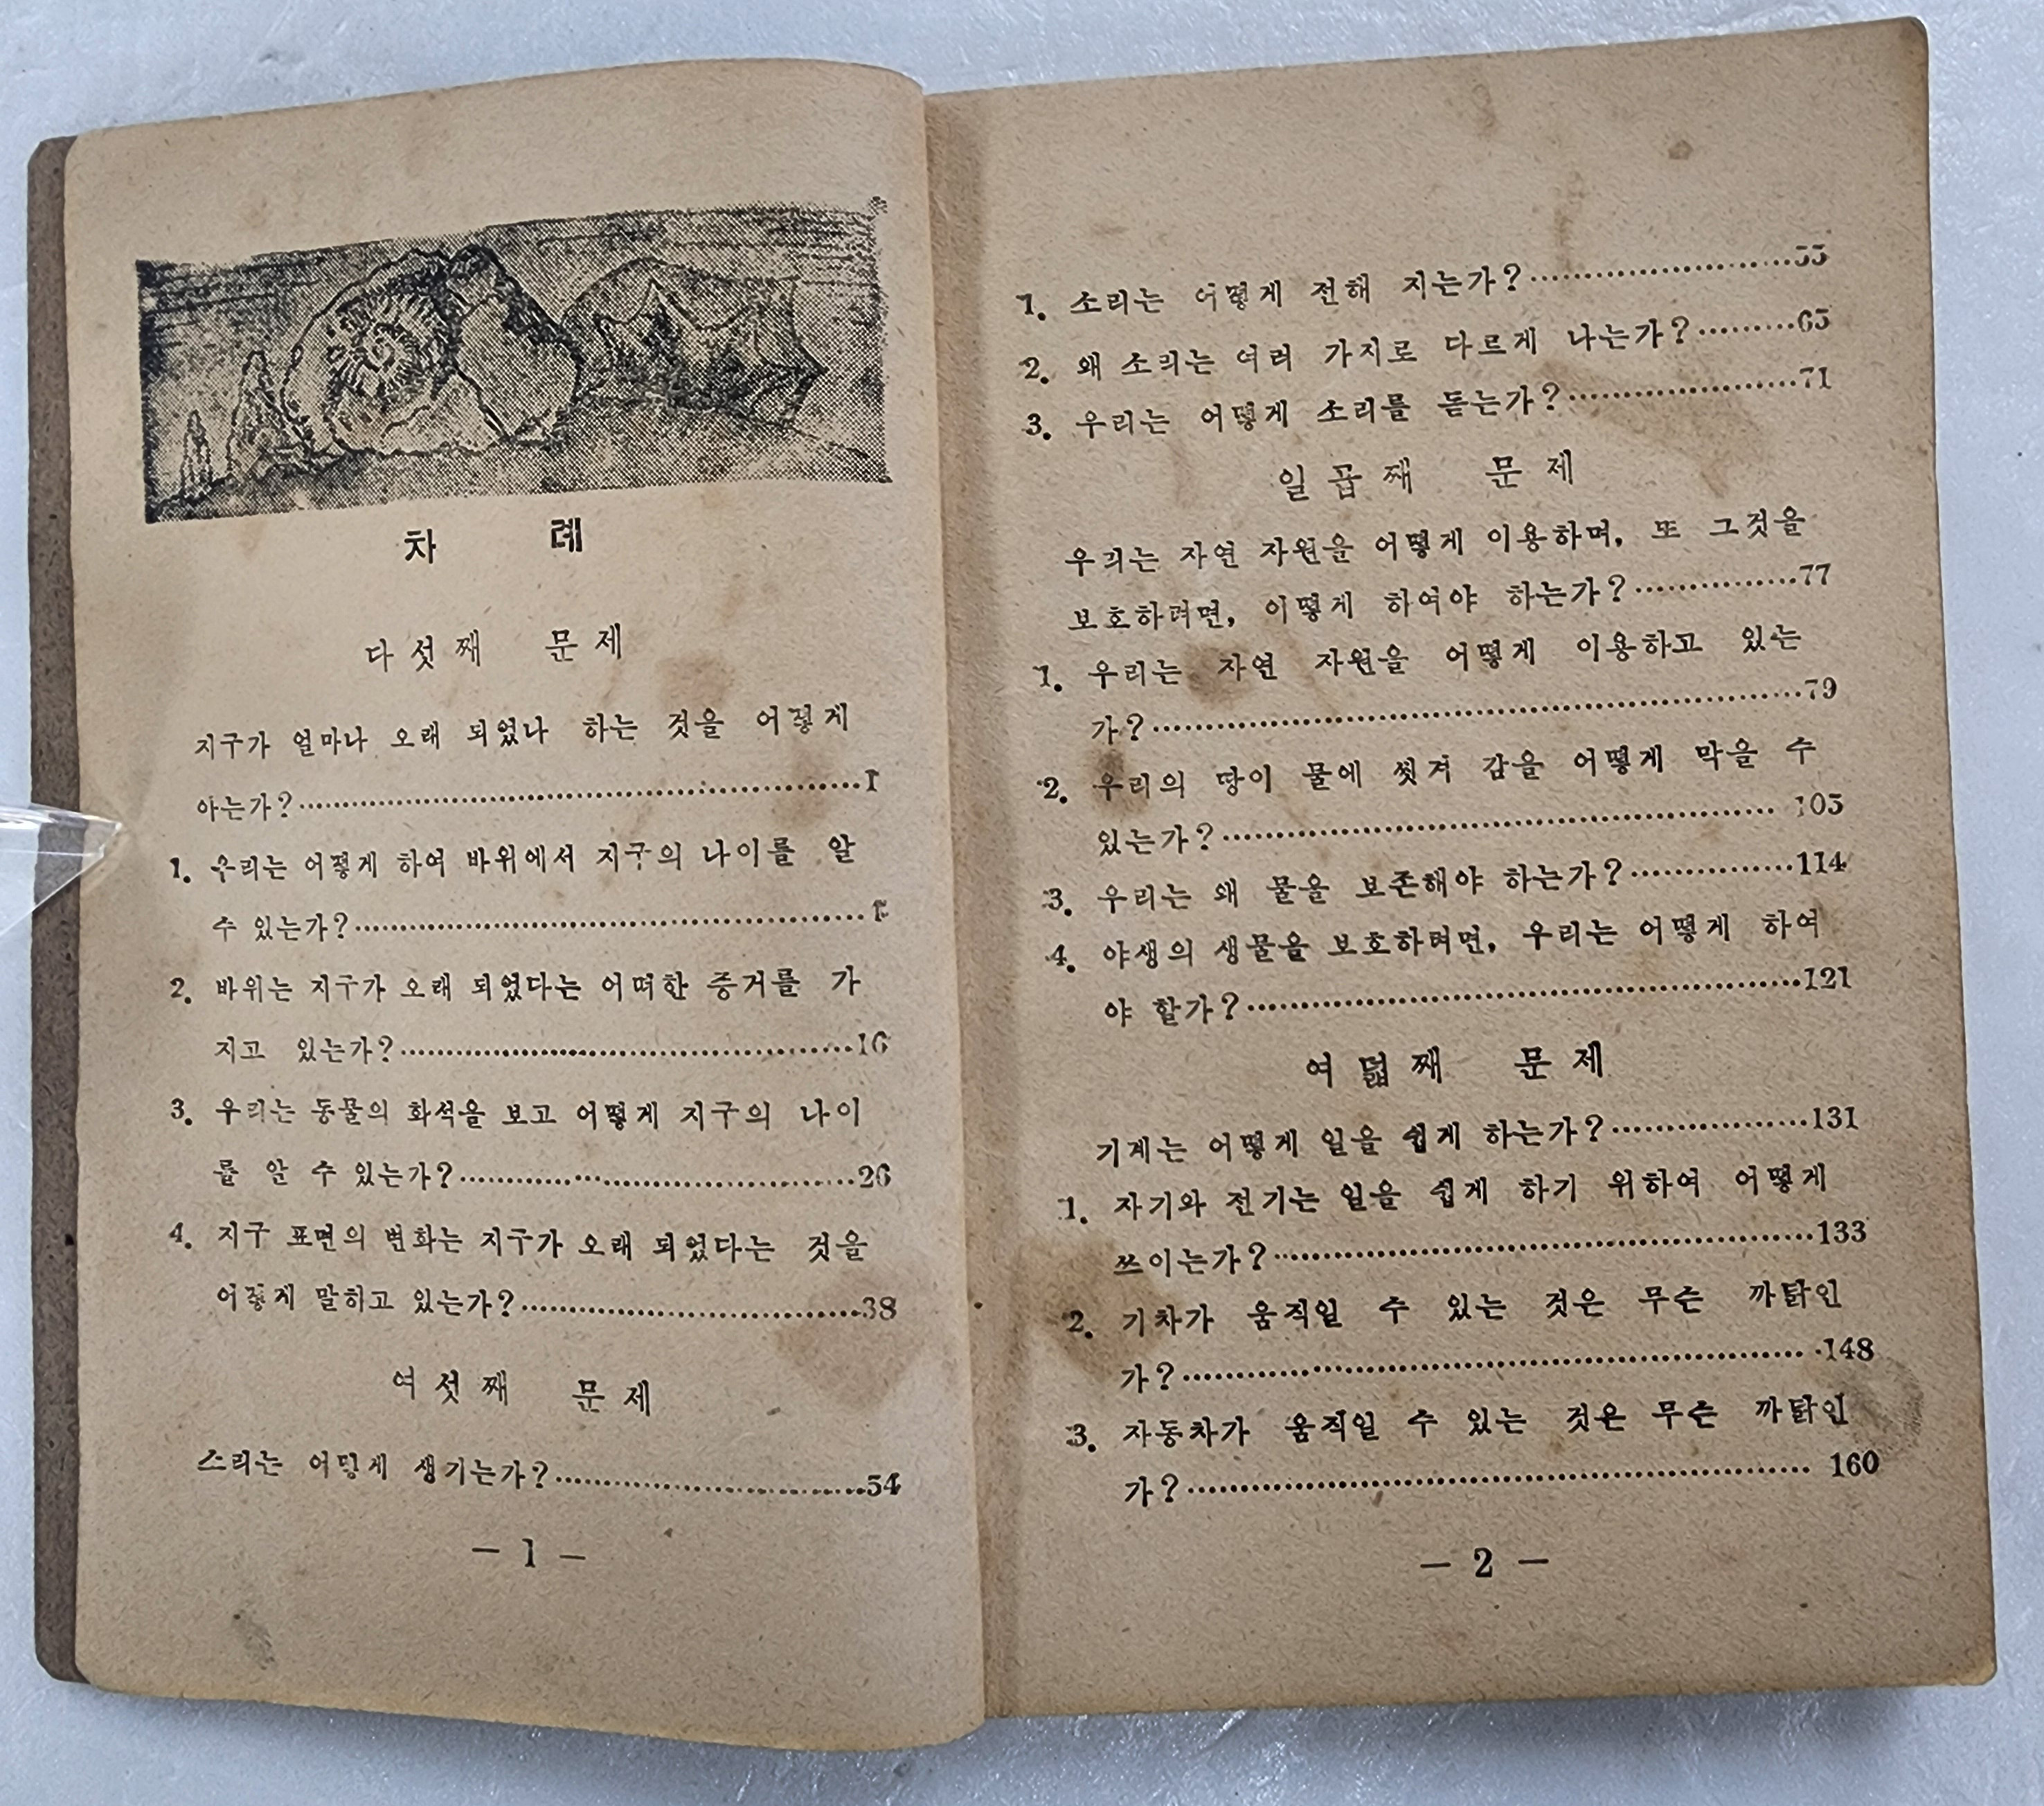 차 례
다섯째 문제
지구가 얼마나 오래 되었나 하는 것을 어떻게
아는가?……1
1. 우리는 어떻게 하여 바위에서 지구의 나이를 알
수 있는가?……
2. 바위는 지구가 오래 되었다는 어떠한 증거를 가
지고 있는가?……16
3. 우리는 동물의 화석을 보고 어떻게 지구의 나이
를 알 수 있는가?……26
4. 지구 표면의 변화는 지구가 오래 되었다는 것을
어떻게 말하고 있는가?……38
여섯째 문제
소리는 어떻게 생기는가?……54
— 1 —
1. 소리는 어떻게 전해 지는가?……55
2. 왜 소리는 여러 가지로 다르게 나는가?……65
3. 우리는 어떻게 소리를 듣는가?……71
일곱째 문제
우리는 자연 자원을 어떻게 이용하며, 또 그것을
보호하려면, 어떻게 하여야 하는가?……77
1. 우리는 자연 자원을 어떻게 이용하고 있는
가?……79
2. 우리의 땅이 물에 씻겨 감을 어떻게 막을 수
있는가?……105
3. 우리는 왜 물을 보존해야 하는가?……114
4. 야생의 생물을 보호하려면, 우리는 어떻게 하여
야 할가?……121
여덟째 문제
기계는 어떻게 일을 쉽게 하는가?……131
1. 자기와 전기는 일을 쉽게 하기 위하여 어떻게
쓰이는가?……133
2. 기차가 움직일 수 있는 것은 무슨 까닭인
가?……148
3. 자동차가 움직일 수 있는 것은 무슨 까닭인
가?……160
— 2 —